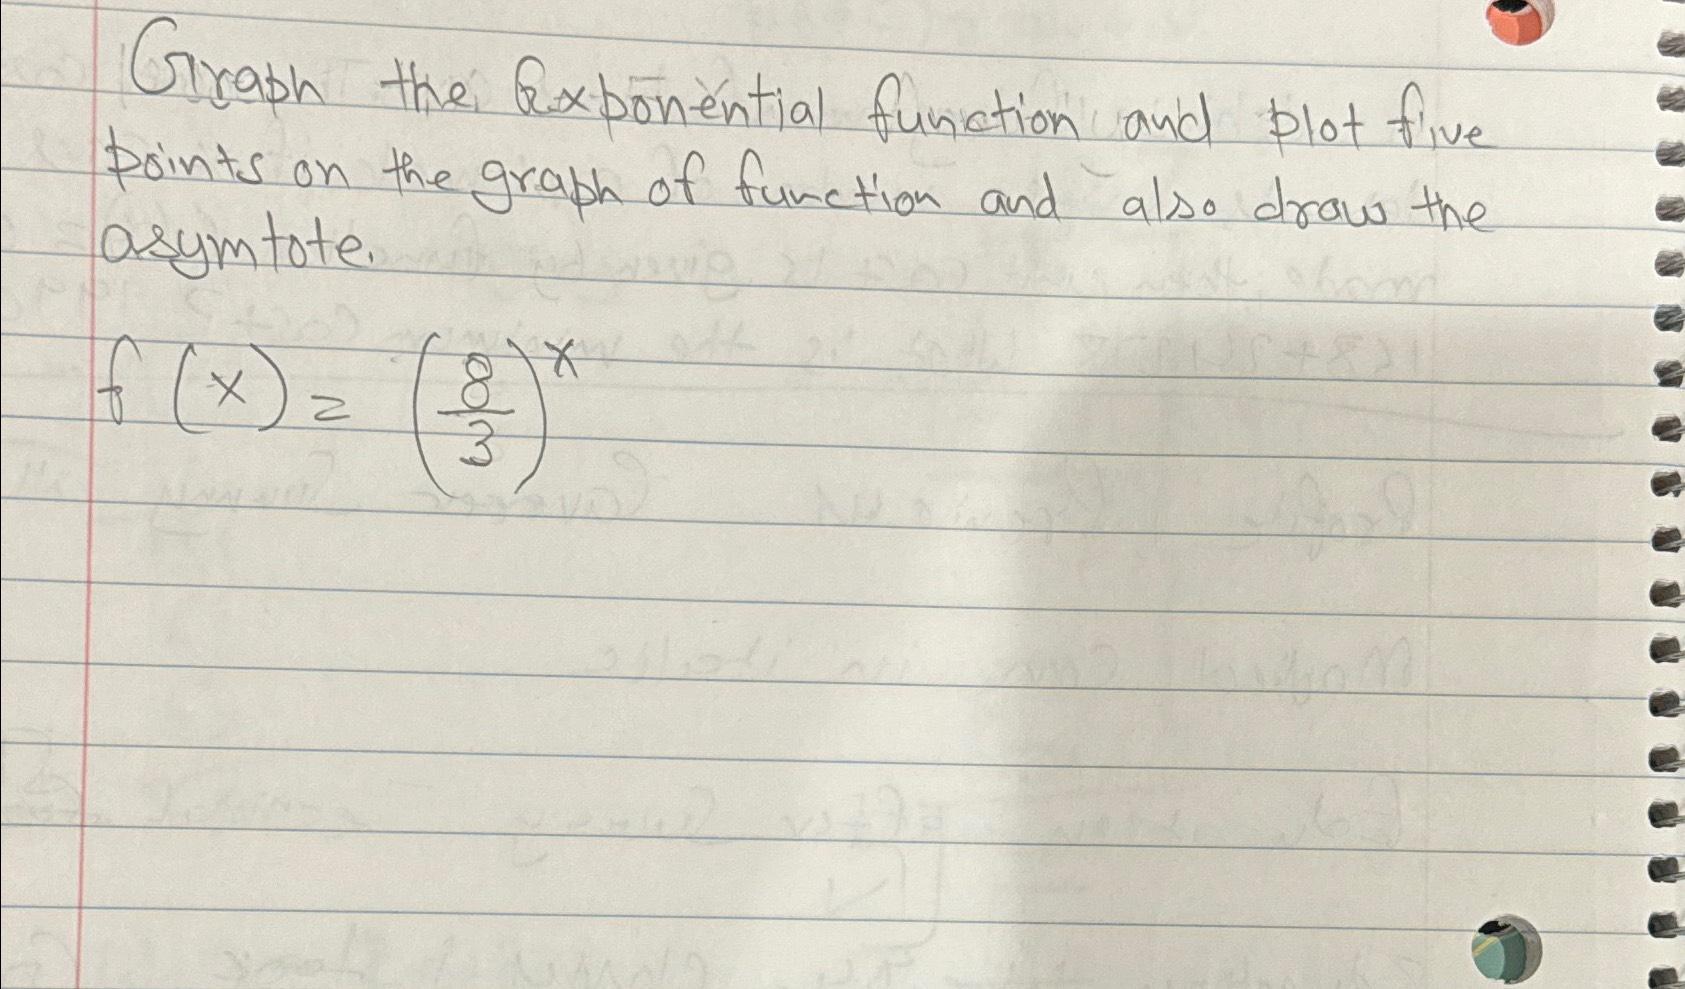 Graph the Exponential function and plot five
points on the graph of function and also draw the
asymtote.
f(x) = (8/3)^x